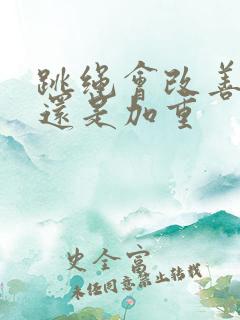 跳繩會改善
還是加重
史全富
未經同意禁止轉載